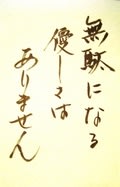 無駄になる
優しさは
ありません